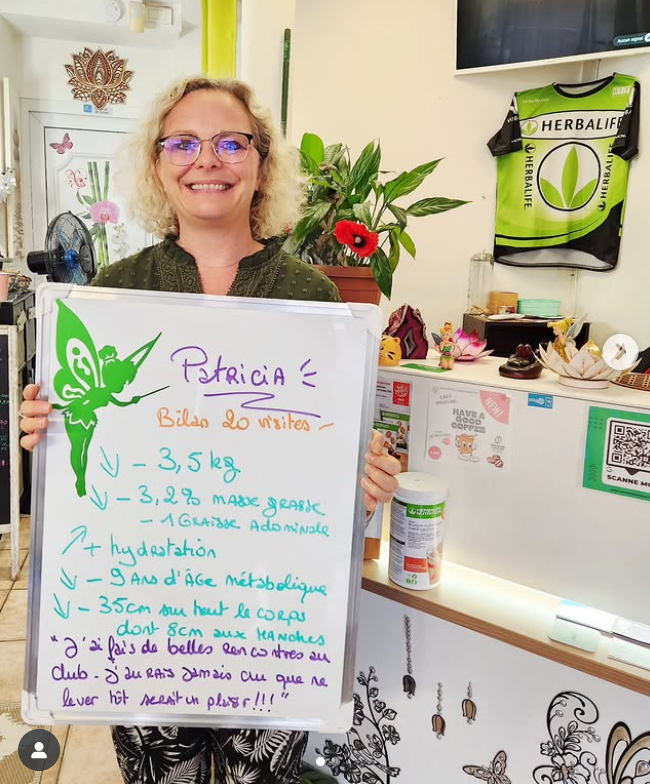 Aucun signal
HERBALIFE
HERBALIFE
HERBALIFE
Patricia
Bilan 20 visites -
↓ - 3,5 kg
↓ - 3,2% masse grasse
- 1 Graisse Adominale
↗ + hydratation
↓ - 9 ans d'Âge métabolique
↓ - 35cm sur tout le corps
dont 8cm aux Hanches
"J'ai fais de belles rencontres au
club. J'aurais jamais cru que me
lever tôt serait un plaisir !!!"
NEW!
HAVE A
GOOD
COFFEE
SCANNE MO
HERBALIFE
NUTRITION